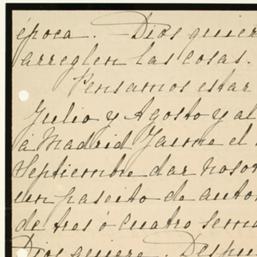 época. Dios quier
arreglen las cosas.
Pensamos estar
Julio y Agosto y al
á Madrid Jaume el
Septiembre dar nosot
un paseito de auto
de tres ó cuatro sema
Dios quiere. Despu